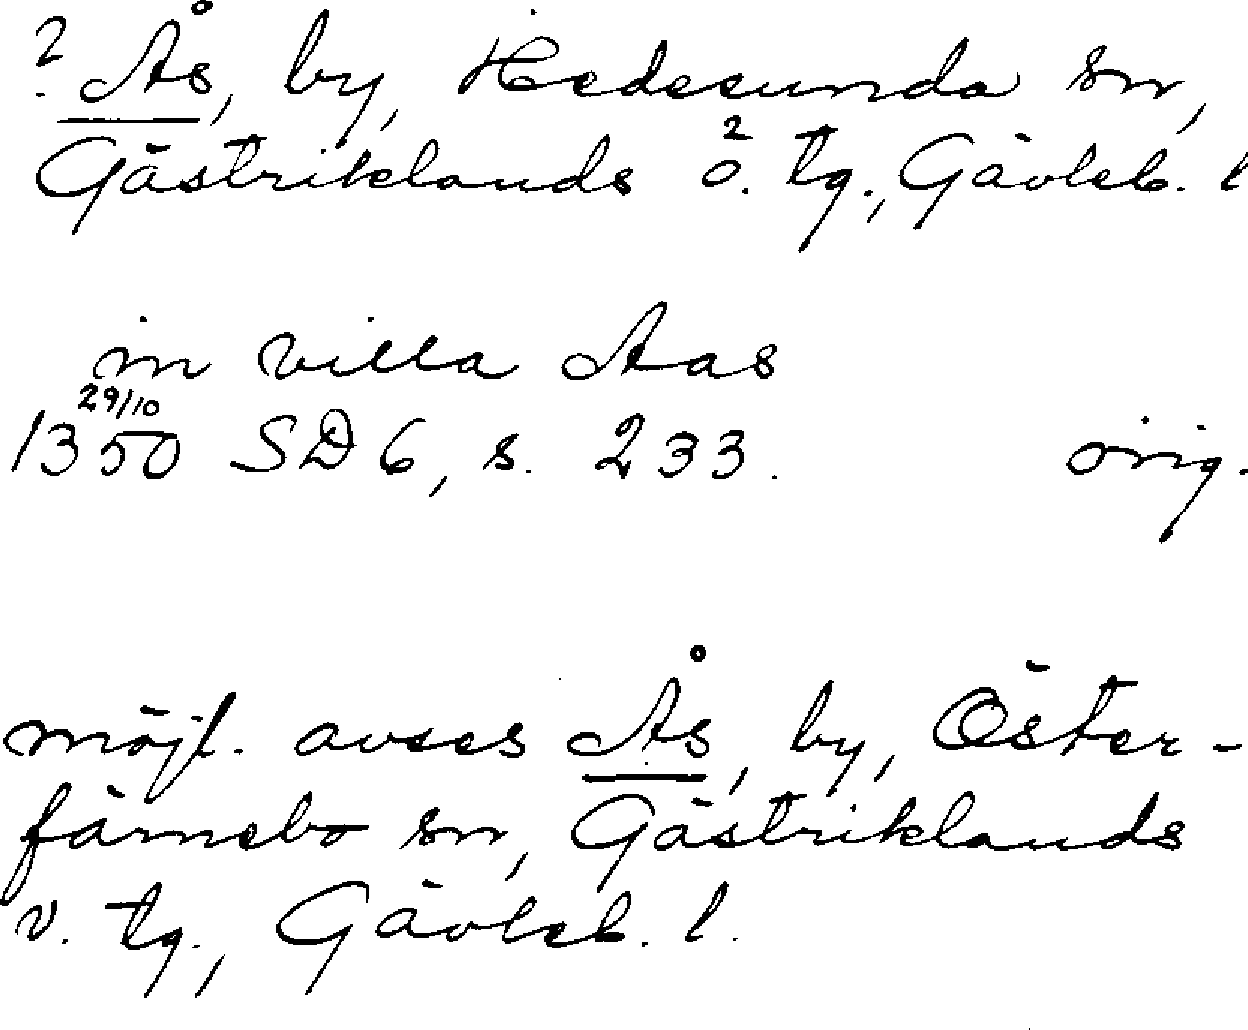 ? Ås, by, Hedesunda sn,
Gästriklands ö. tg., Gävleb. l
in villa Aas
29/10
1350 SD 6, s. 233. orig.
möjl. avses Ås, by, Öster-
färnebo sn, Gästriklands
v. tg., Gävleb. l.